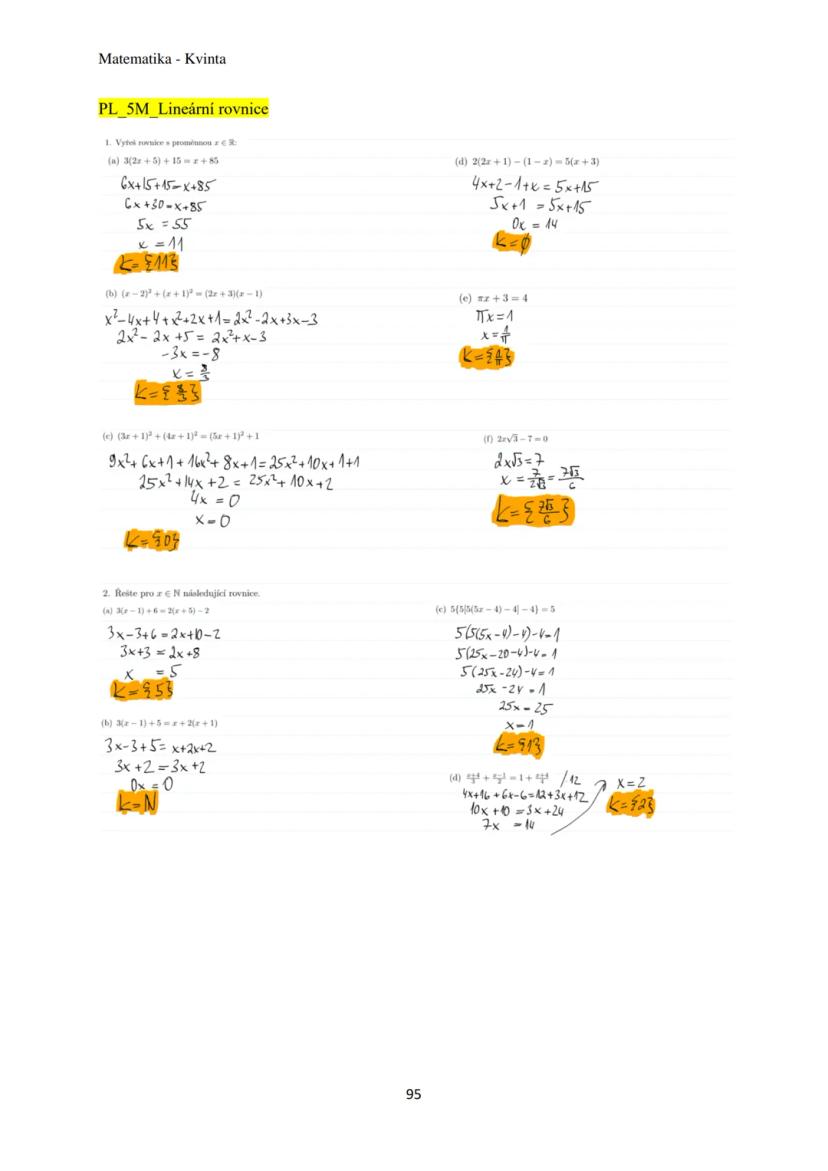 Matematika - Kvinta
PL_5M_Lineární rovnice
1. Vyřeš rovnice s proměnnou x ∈ ℝ:
(a) 3(2x + 5) + 15 = x + 85
6x+15+15=x+85
6x+30=x+85
5x = 55
x = 11
K={11}
(b) (x − 2)² + (x + 1)² = (2x + 3)(x − 1)
x²-4x+4+x²+2x+1=2x²-2x+3x-3
2x²-2x+5 = 2x²+x-3
-3x=-8
x = 8/3
K={8/3}
(c) (3x + 1)² + (4x + 1)² = (5x + 1)² + 1
9x²+6x+1+16x²+8x+1=25x²+10x+1+1
25x²+14x+2 = 25x²+10x+2
4x = 0
x=0
K={0}
(d) 2(2x + 1) − (1 − x) = 5(x + 3)
4x+2-1+x=5x+15
5x+1 =5x+15
0x = 14
K=∅
(e) πx + 3 = 4
πx=1
x=1/π
K={1/π}
(f) 2x√3 − 7 = 0
2x√3=7
x = 7/2√3 = 7√3/6
K={7√3/6}
2. Řešte pro x ∈ ℕ následující rovnice.
(a) 3(x − 1) + 6 = 2(x + 5) − 2
3x-3+6=2x+10-2
3x+3 = 2x+8
x = 5
K={5}
(b) 3(x − 1) + 5 = x + 2(x + 1)
3x-3+5= x+2x+2
3x+2=3x+2
0x = 0
K=N
(c) 5{5[5(5x − 4) − 4] − 4} = 5
5(5(5x-4)-4)-4=1
5(25x-20-4)-4=1
5(25x-24)-4=1
25x-24=1
25x=25
x=1
K={1}
(d) x+4/3 + x−1/2 = 1 + x+4/4 /12
4x+16+6x-6=12+3x+12
10x+10=3x+24
7x =14
x=2
K={2}
95